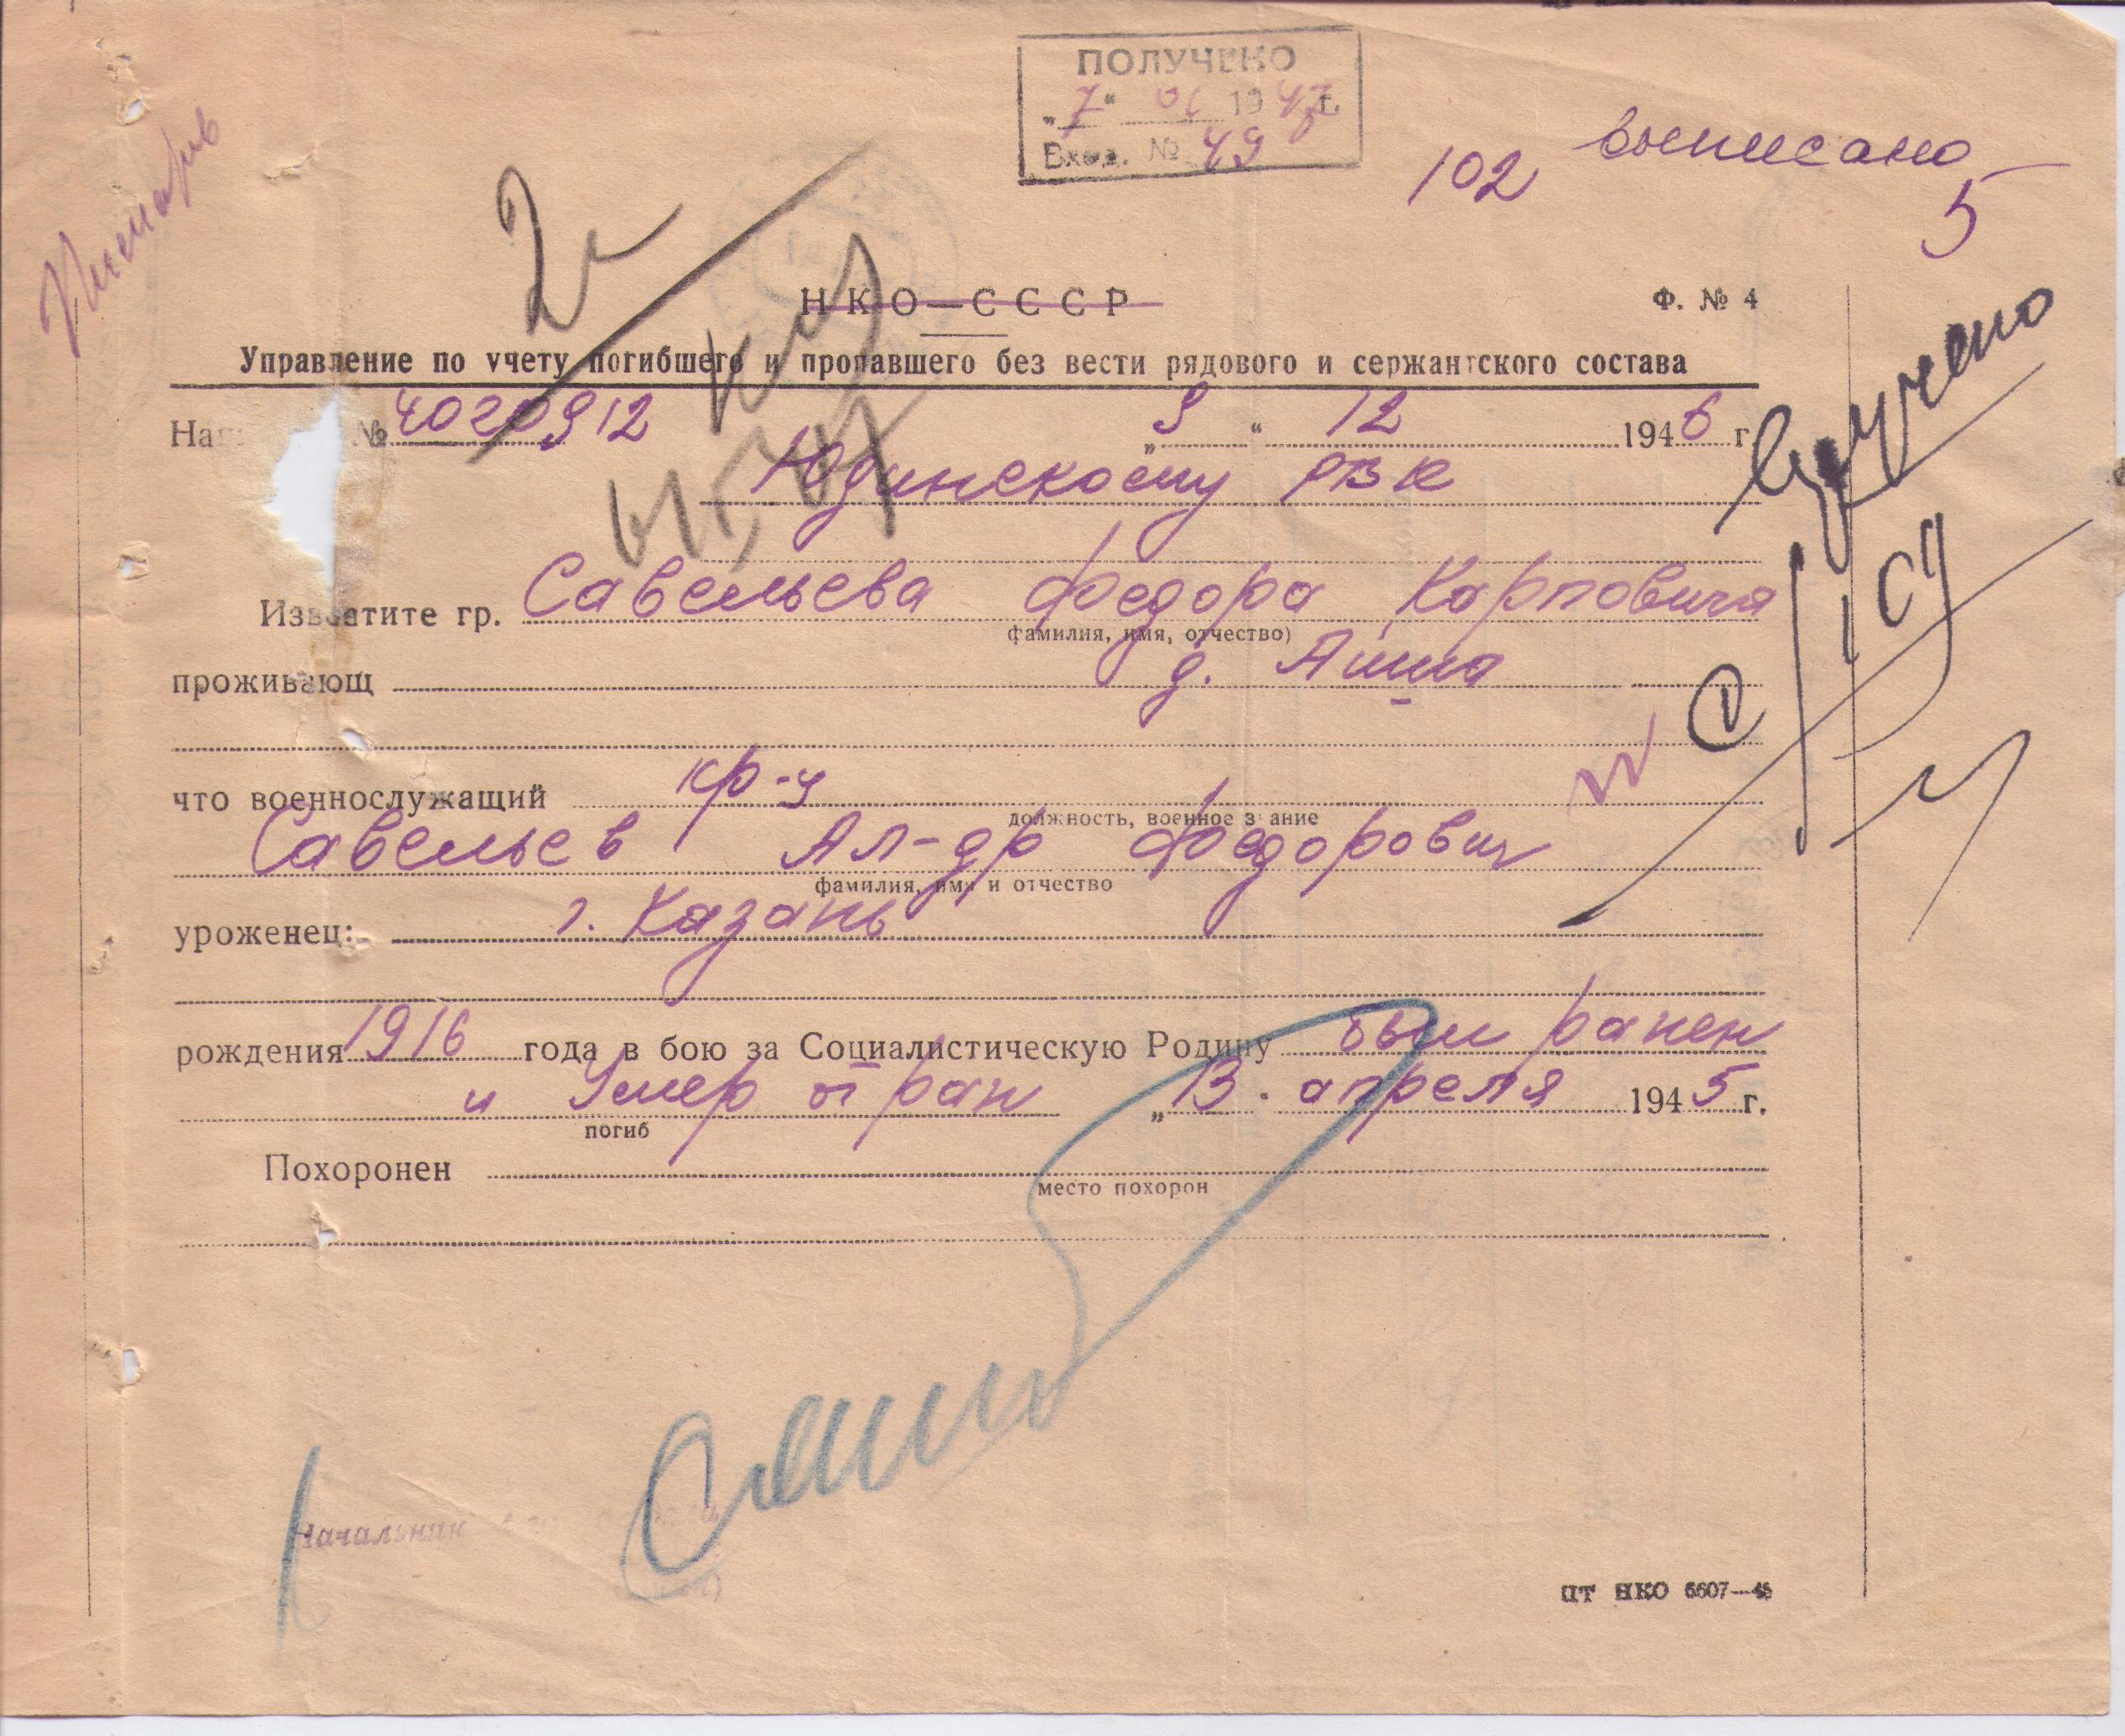 ПОЛУЧЕНО
„7“ 01 1947 г.
Вход. № 49
выписано
102
5
НКО—СССР
Ф. № 4
Управление по учету погибшего и пропавшего без вести рядового и сержантского состава
№ 4020912 „9“ 12 1946 г.
Юдинскому РВК
вручено
Известите гр. Савельева Федора Карповича
фамилия, имя, отчество)
проживающ д. Айша
что военнослужащий кр-ц
должность, военное звание
Савельев Ал-др Федорович
фамилия, имя и отчество
уроженец: г. Казань
рождения 1916 года в бою за Социалистическую Родину был ранен
и Умер от ран „13“ апреля 1945 г.
погиб
Похоронен
место похорон
Начальник
ПТ НКО 6607—45